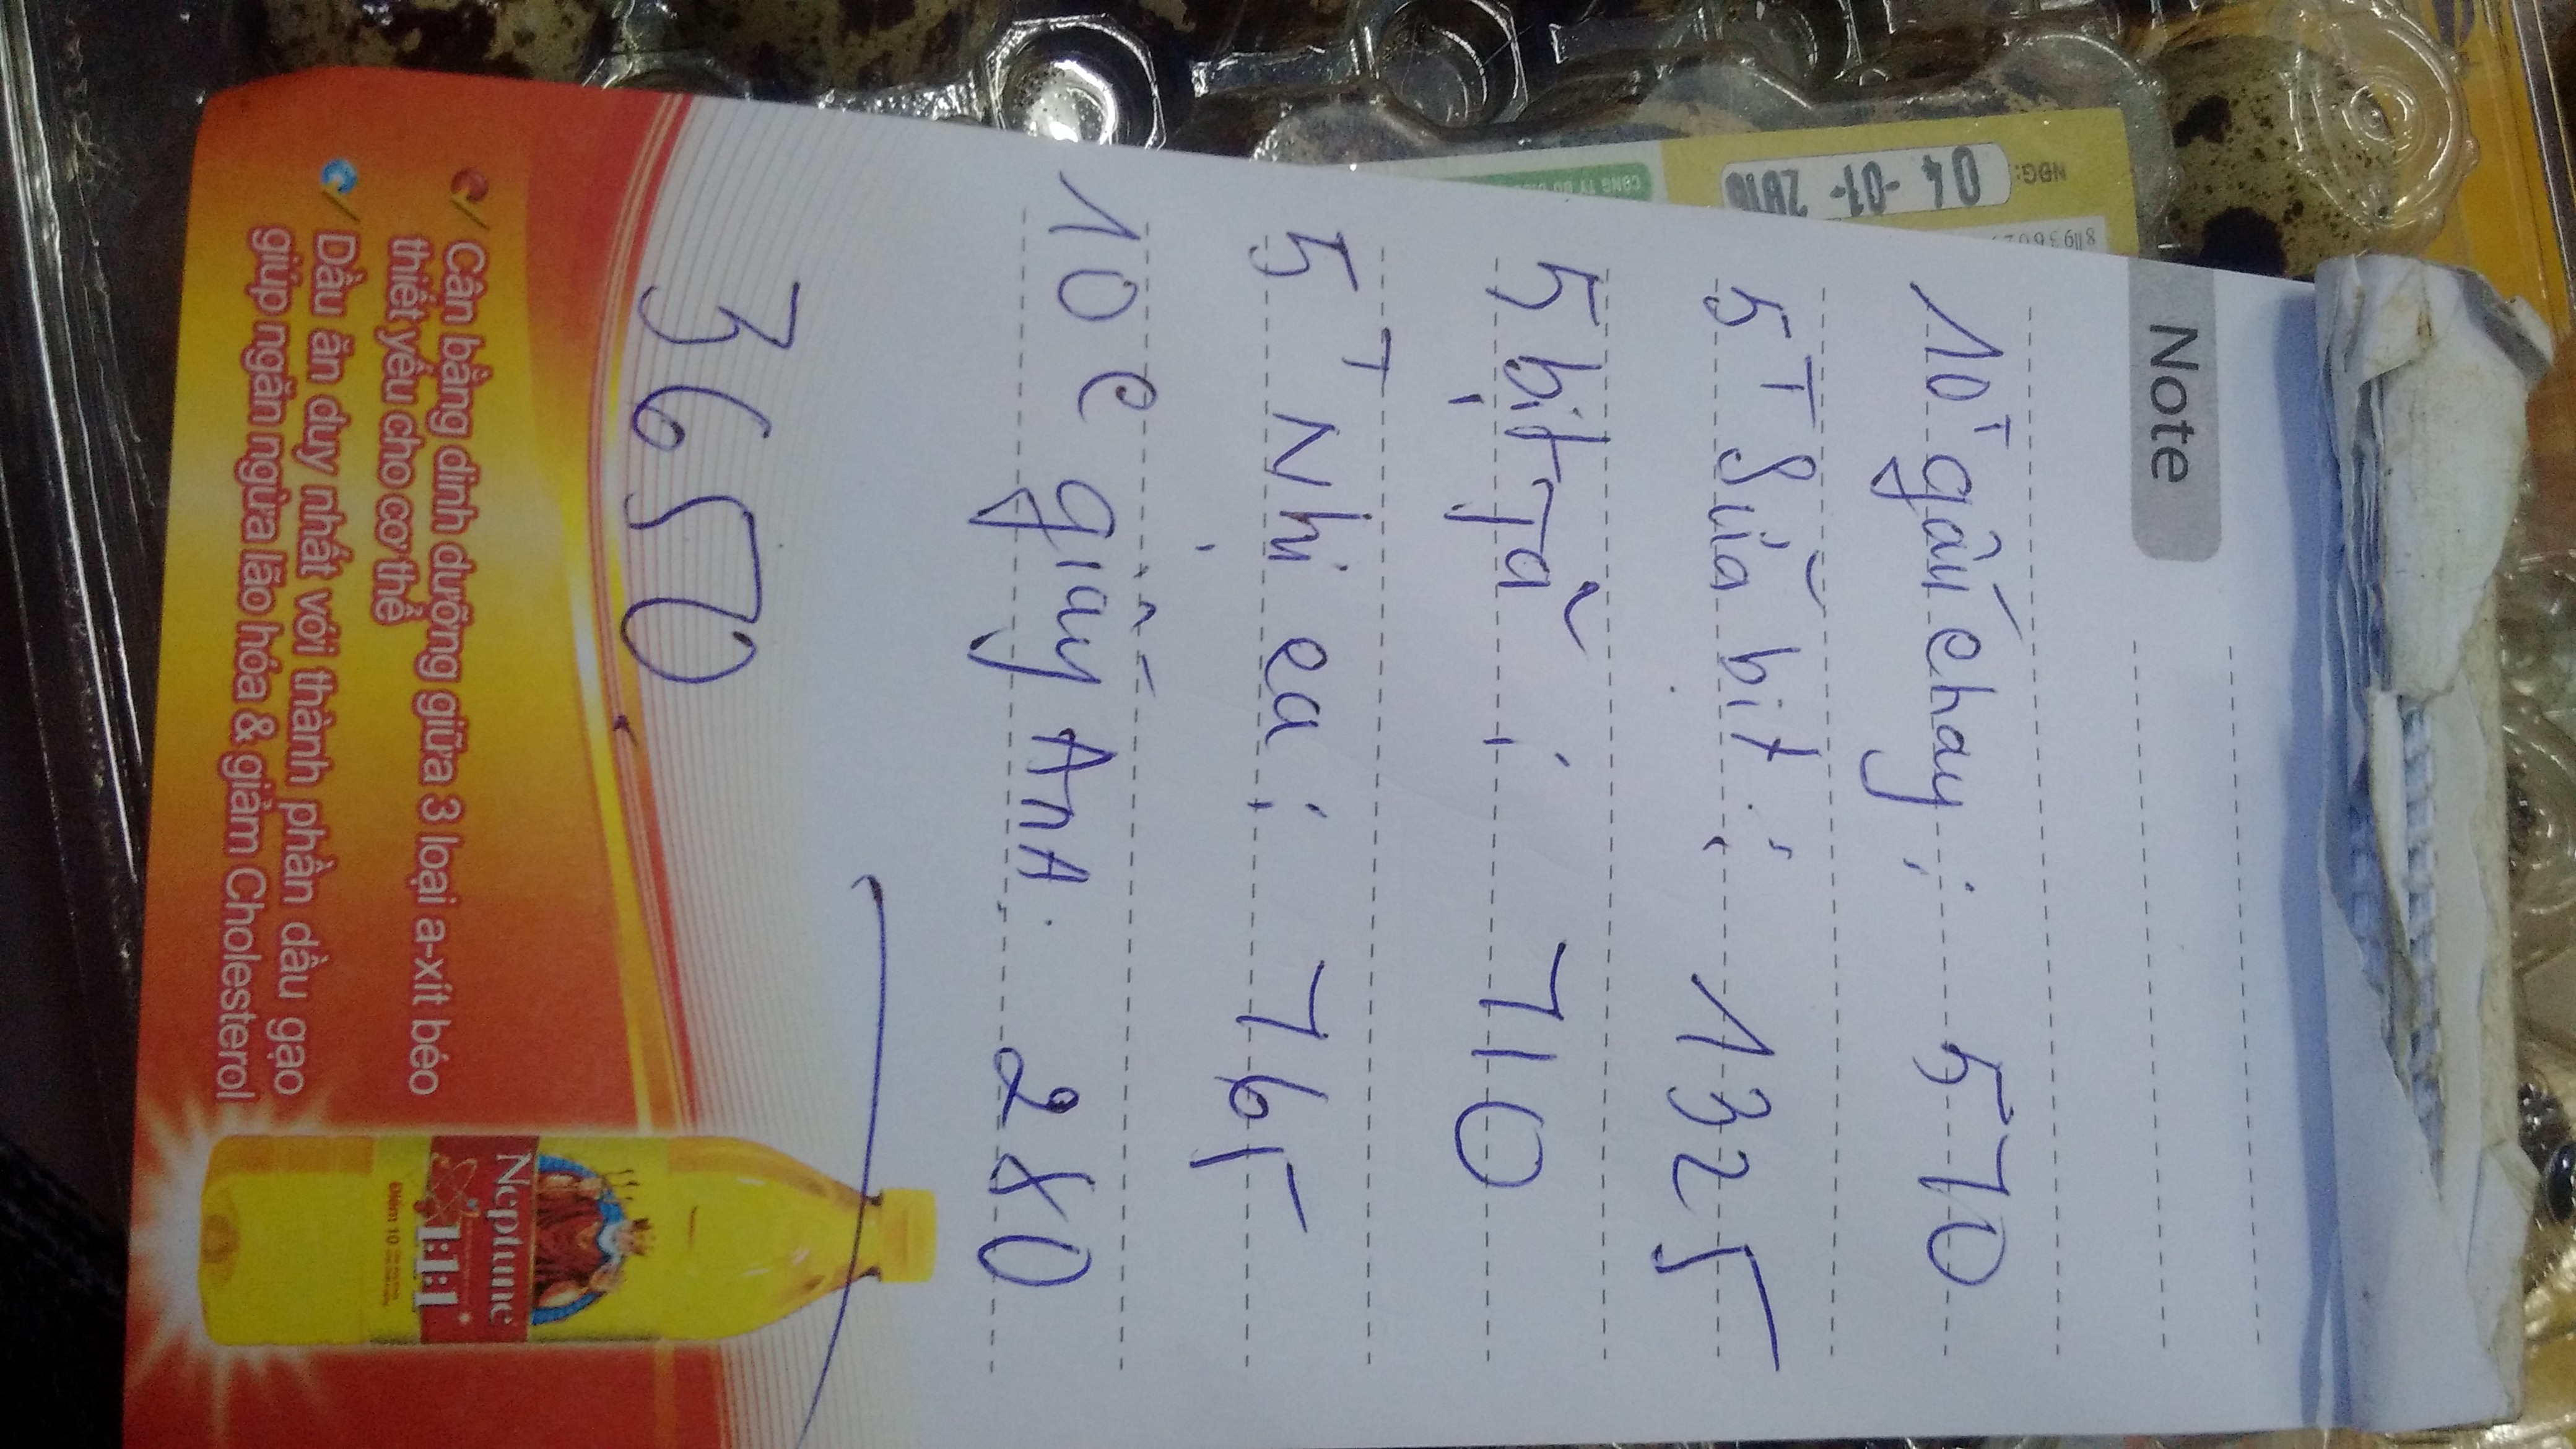 Note
10T gấu chay: 570
5T Sữa bịt: 1325
5 bịt Tã: 710
5T Nhi ca: 765
10 c giấy AnA: 280
3650
Cân bằng dinh dưỡng giữa 3 loại a-xít béo
thiết yếu cho cơ thể
Dầu ăn duy nhất với thành phần dầu gạo
giúp ngăn ngừa lão hóa & giảm Cholesterol
Neptune
1:1:1
NĐG: 04-01-2016